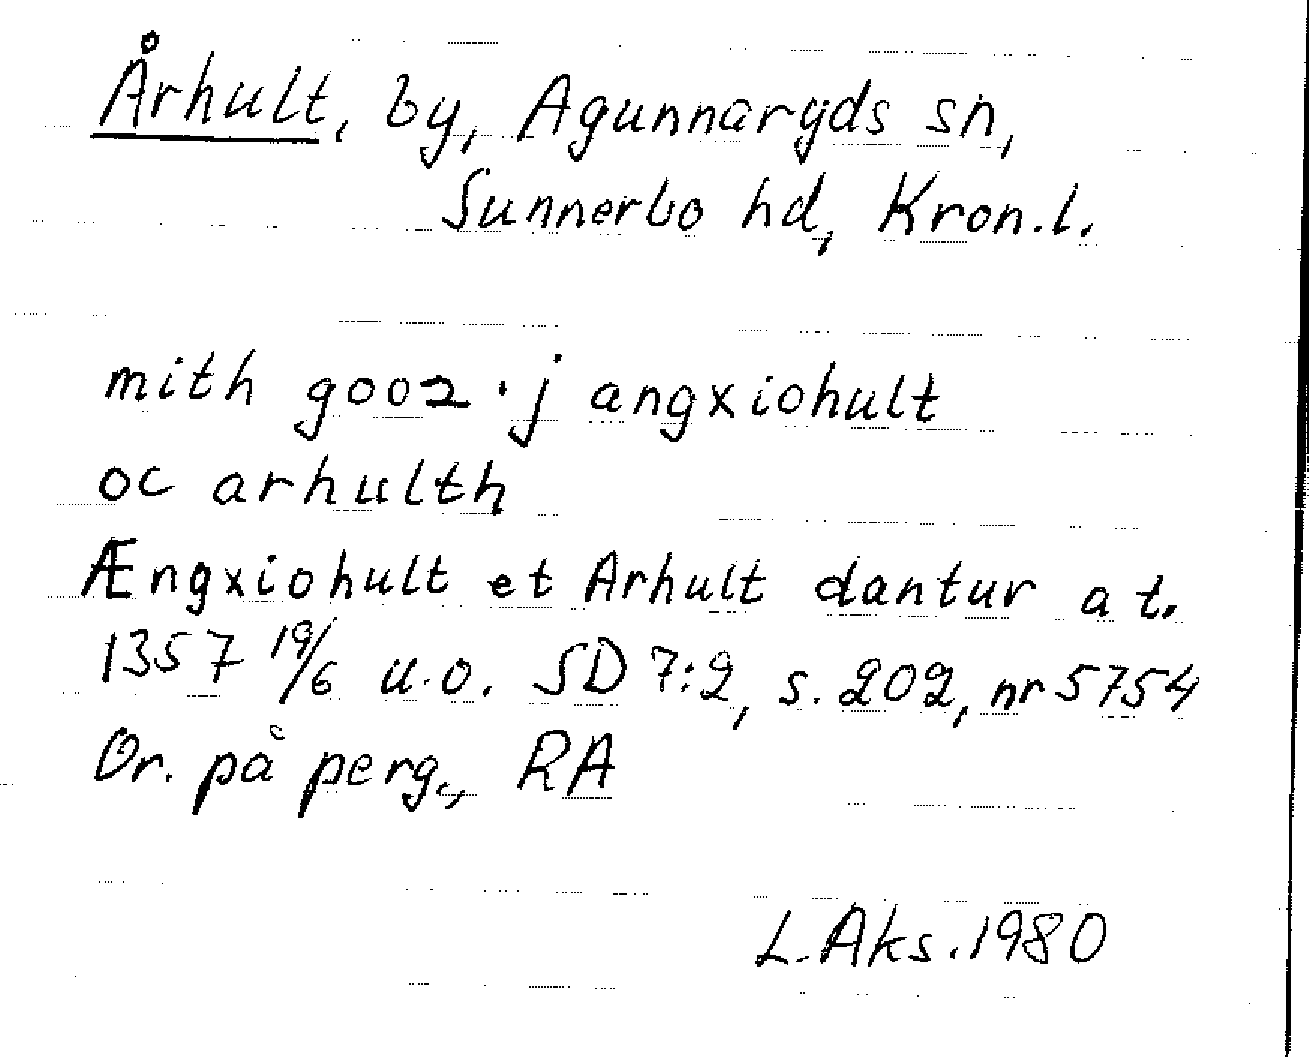 Århult, by, Agunnaryds sn,
Sunnerbo hd, Kron.l.
mith gooz · j angxiohult
oc arhulth
Ængxiohult et Arhult dantur a t.
1357 19/6 u.o. SD 7:2, s. 202, nr 5754
Or. på perg., RA
L. Aks. 1980